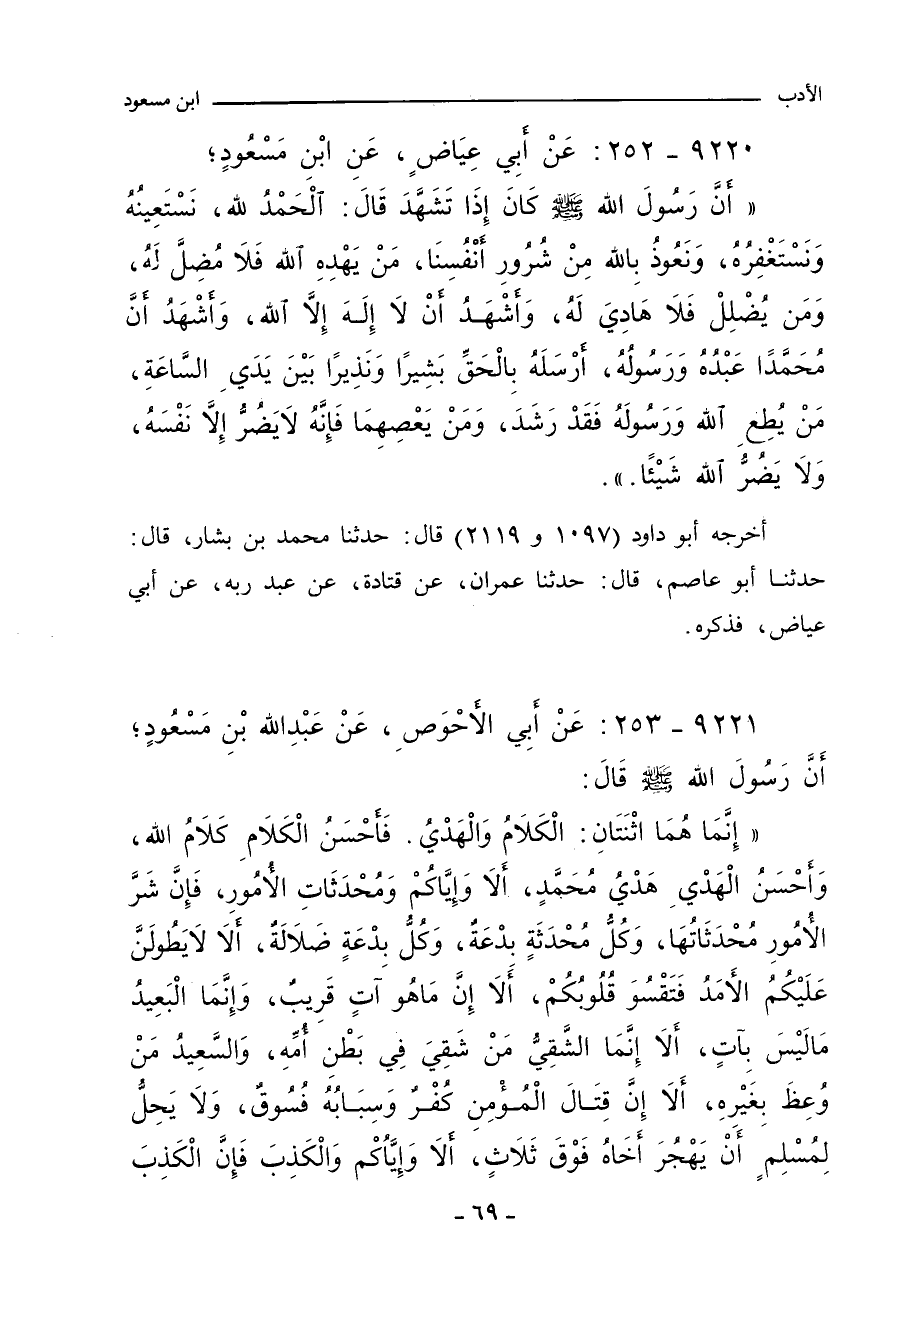 الأدب ــــــــــ ابن مسعود
٩٢٢٠ ـ ٢٥٢: عَنْ أَبِي عِيَاضٍ، عَنِ ابْنِ مَسْعُودٍ؛
« أَنَّ رَسُولَ اللهِ ﷺ كَانَ إِذَا تَشَهَّدَ قَالَ: ٱلْحَمْدُ للهِ، نَسْتَعِينُهُ
وَنَسْتَغْفِرُهُ، وَنَعُوذُ بِاللهِ مِنْ شُرُورِ أَنْفُسِنَا، مَنْ يَهْدِهِ ٱللهُ فَلَا مُضِلَّ لَهُ،
وَمَن يُضْلِلْ فَلَا هَادِيَ لَهُ، وَأَشْهَدُ أَنْ لَا إِلَهَ إِلَّا ٱللهُ، وَأَشْهَدُ أَنَّ
مُحَمَّدًا عَبْدُهُ وَرَسُولُهُ، أَرْسَلَهُ بِالْحَقِّ بَشِيرًا وَنَذِيرًا بَيْنَ يَدَيِ السَّاعَةِ،
مَنْ يُطِعِ ٱللهَ وَرَسُولَهُ فَقَدْ رَشَدَ، وَمَنْ يَعْصِهِمَا فَإِنَّهُ لَايَضُرُّ إِلَّا نَفْسَهُ،
وَلَا يَضُرُّ ٱللهَ شَيْئًا.».
أخرجه أبو داود (١٠٩٧ و ٢١١٩) قال: حدثنا محمد بن بشار، قال:
حدثنا أبو عاصم، قال: حدثنا عمران، عن قتادة، عن عبد ربه، عن أبي
عياض، فذكره.
٩٢٢١ ـ ٢٥٣: عَنْ أَبِي الأَحْوَصِ، عَنْ عَبْدِاللهِ بْنِ مَسْعُودٍ؛
أَنَّ رَسُولَ اللهِ ﷺ قَالَ:
« إِنَّمَا هُمَا اثْنَتَانِ: الْكَلَامُ وَالْهَدْيُ. فَأَحْسَنُ الْكَلَامِ كَلَامُ اللهِ،
وَأَحْسَنُ الْهَدْيِ هَدْيُ مُحَمَّدٍ، أَلَا وَإِيَّاكُمْ وَمُحْدَثَاتِ الأُمُورِ، فَإِنَّ شَرَّ
الأُمُورِ مُحْدَثَاتُهَا، وَكُلُّ مُحْدَثَةٍ بِدْعَةٌ، وَكُلُّ بِدْعَةٍ ضَلَالَةٌ، أَلَا لَايَطُولَنَّ
عَلَيْكُمُ الأَمَدُ فَتَقْسُوَ قُلُوبُكُمْ، أَلَا إِنَّ مَاهُوَ آتٍ قَرِيبٌ، وَإِنَّمَا الْبَعِيدُ
مَالَيْسَ بِآتٍ، أَلَا إِنَّمَا الشَّقِيُّ مَنْ شَقِيَ فِي بَطْنِ أُمِّهِ، وَالسَّعِيدُ مَنْ
وُعِظَ بِغَيْرِهِ، أَلَا إِنَّ قِتَالَ الْمُؤْمِنِ كُفْرٌ وَسِبَابُهُ فُسُوقٌ، وَلَا يَحِلُّ
لِمُسْلِمٍ أَنْ يَهْجُرَ أَخَاهُ فَوْقَ ثَلَاثٍ، أَلَا وَإِيَّاكُم وَالْكَذِبَ فَإِنَّ الْكَذِبَ
ـ ٦٩ ـ